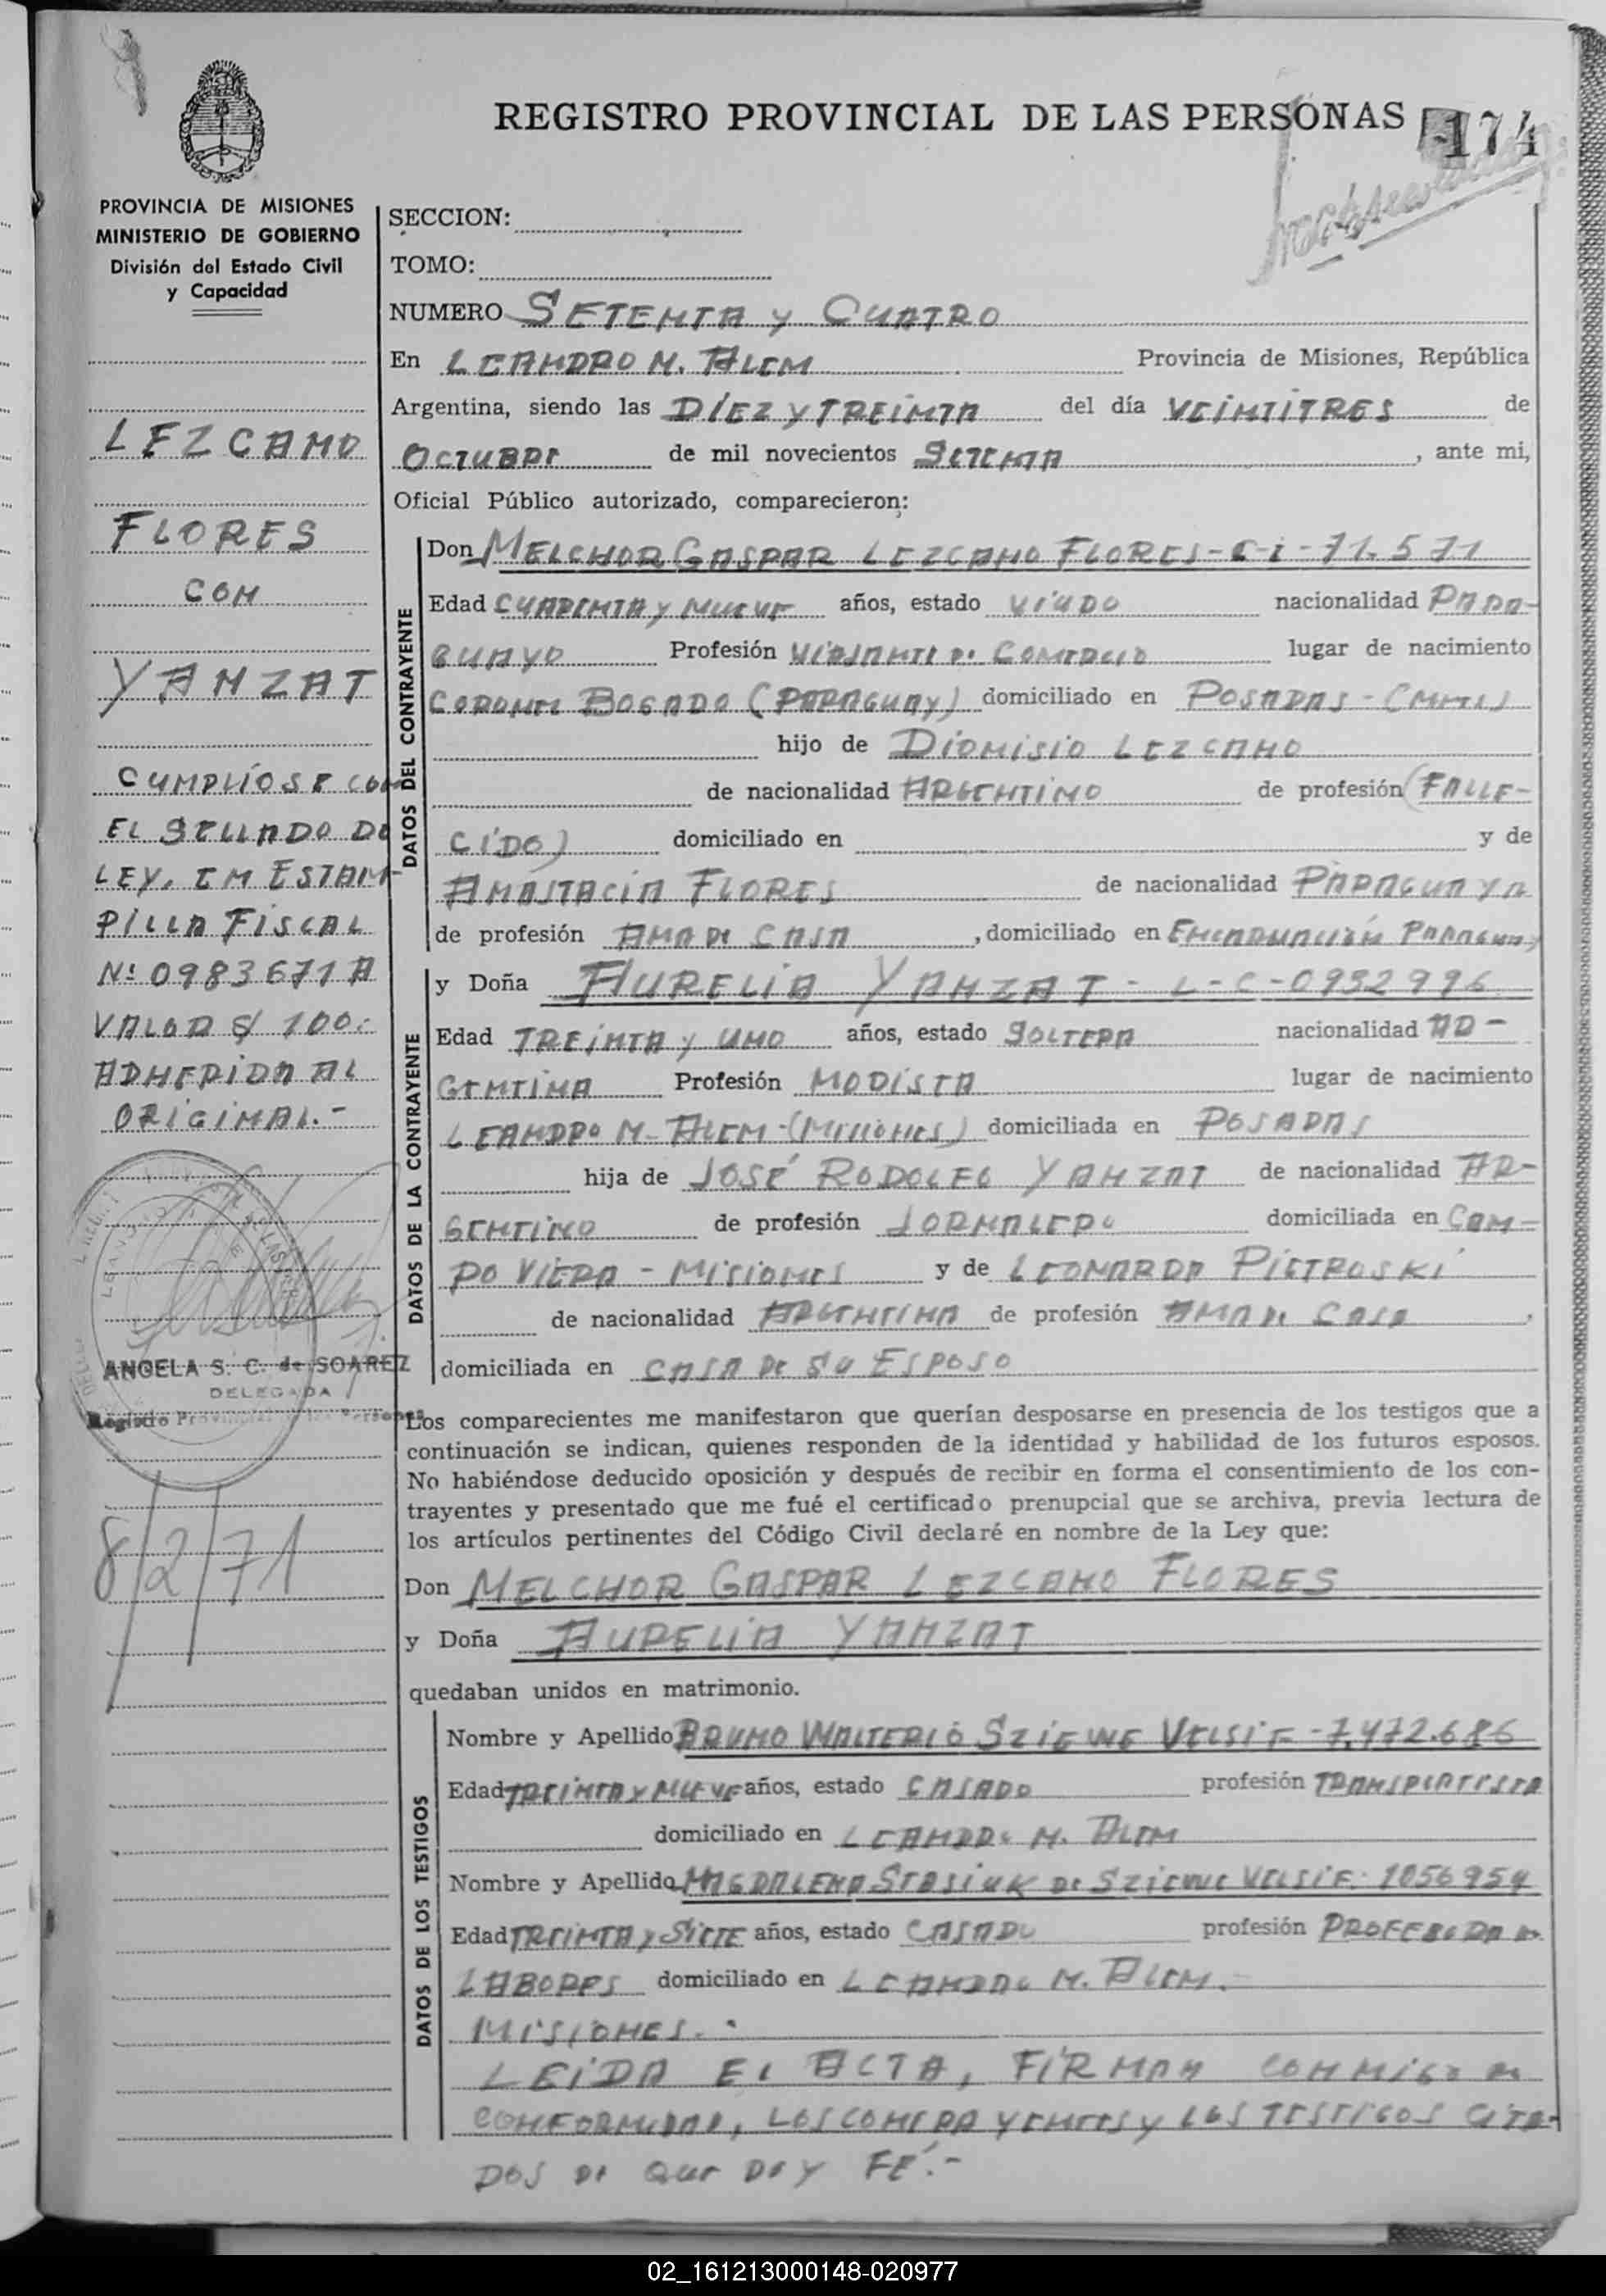 REGISTRO PROVINCIAL DE LAS PERSONAS
174
PROVINCIA DE MISIONES
MINISTERIO DE GOBIERNO
División del Estado Civil
y Capacidad
LEZCANO
FLORES
CON
YANZAT
CUMPLÍOSE CON
EL SELLADO DE
LEY, EN ESTAM-
PILLA FISCAL
Nº 0983671 A
VALOR $ 100.-
ADHERIDA AL
ORIGINAL.-
ANGELA S. C. de SOAREZ
DELEGADA
Registro Provincial de las Personas
8/2/71
SECCION:
TOMO:
NUMERO SETENTA y CUATRO
En LEANDRO N. ALEM Provincia de Misiones, República
Argentina, siendo las DIEZ Y TREINTA del día VEINTITRES de
OCTUBRE de mil novecientos SETENTA, ante mi,
Oficial Público autorizado, comparecieron:
DATOS DEL CONTRAYENTE
Don MELCHOR GASPAR LEZCANO FLORES - C-I - 71.571
Edad CUARENTA y NUEVE años, estado VIUDO nacionalidad PARA-
GUAYO Profesión VIAJANTE DE COMERCIO lugar de nacimiento
CORONEL BOGADO (PARAGUAY) domiciliado en POSADAS - (MNES)
hijo de DIONISIO LEZCANO
de nacionalidad ARGENTINO de profesión (FALLE-
CIDO) domiciliado en y de
ANASTACIA FLORES de nacionalidad PARAGUAYA
de profesión AMA DE CASA, domiciliado en ENCARNACIÓN PARAGUAY
DATOS DE LA CONTRAYENTE
y Doña AURELIA YANZAT - L-C-0932996
Edad TREINTA y UNO años, estado SOLTERA nacionalidad AR-
GENTINA Profesión MODISTA lugar de nacimiento
LEANDRO N. ALEM - (MISIONES) domiciliada en POSADAS
hija de JOSÉ RODOLFO YANZAT de nacionalidad AR-
GENTINO de profesión JORNALERO domiciliada en CAM-
PO VIERA - MISIONES y de LEONARDA PIETROSKI
de nacionalidad ARGENTINA de profesión AMA DE CASA,
domiciliada en CASA DE SU ESPOSO
Los comparecientes me manifestaron que querían desposarse en presencia de los testigos que a
continuación se indican, quienes responden de la identidad y habilidad de los futuros esposos.
No habiéndose deducido oposición y después de recibir en forma el consentimiento de los con-
trayentes y presentado que me fué el certificado prenupcial que se archiva, previa lectura de
los artículos pertinentes del Código Civil declaré en nombre de la Ley que:
Don MELCHOR GASPAR LEZCANO FLORES
y Doña AURELIA YANZAT
quedaban unidos en matrimonio.
DATOS DE LOS TESTIGOS
Nombre y Apellido BRUNO WALTERIO SZIEWE VELSIF - 7.472.686
Edad TREINTA y NUEVE años, estado CASADO profesión TRANSPORTISTA
domiciliado en LEANDRO N. ALEM
Nombre y Apellido MAGDALENA STASIUK DE SZIEWE VELSIF. 1056954
Edad TREINTA y SIETE años, estado CASADO profesión PROFESORA DE
LABORES domiciliado en LEANDRO N. ALEM.-
MISIONES.-
LEIDA EL ACTA, FIRMAN CONMIGO DE
CONFORMIDAD, LOS CONTRAYENTES y LOS TESTIGOS CITA-
DOS DE QUE DOY FÉ.-
02_161213000148-020977